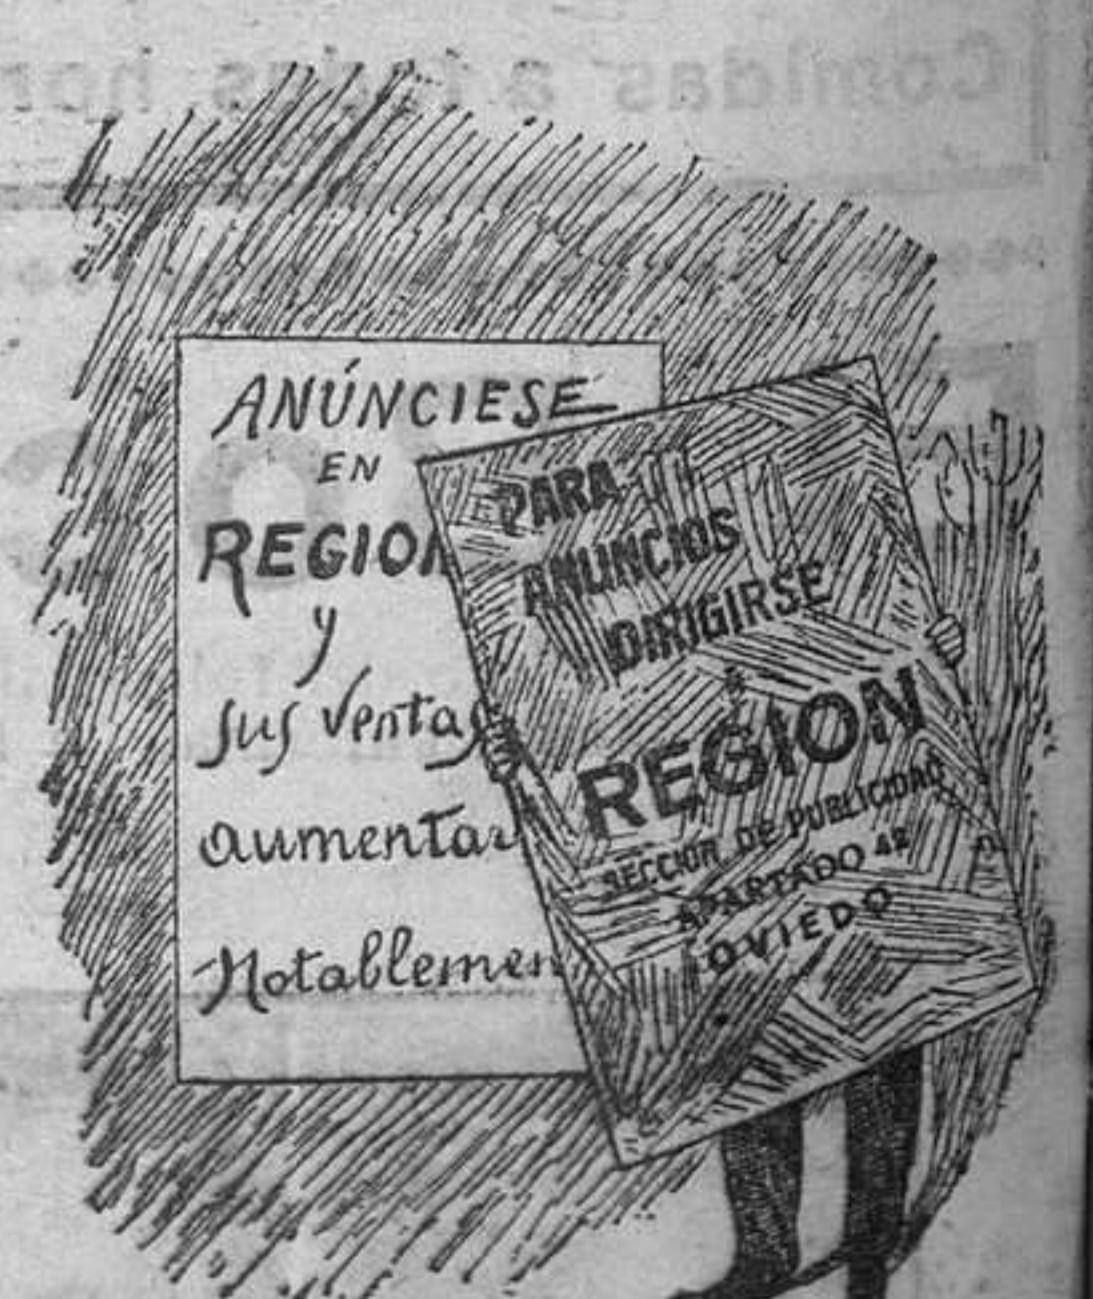 ANÚNCIESE
EN
REGION
y
sus Ventas
aumentan
Notablemen
PARA
ANUNCIOS
DIRIGIRSE
á
REGION
SECCION DE PUBLICIDAD
APARTADO 42
OVIEDO